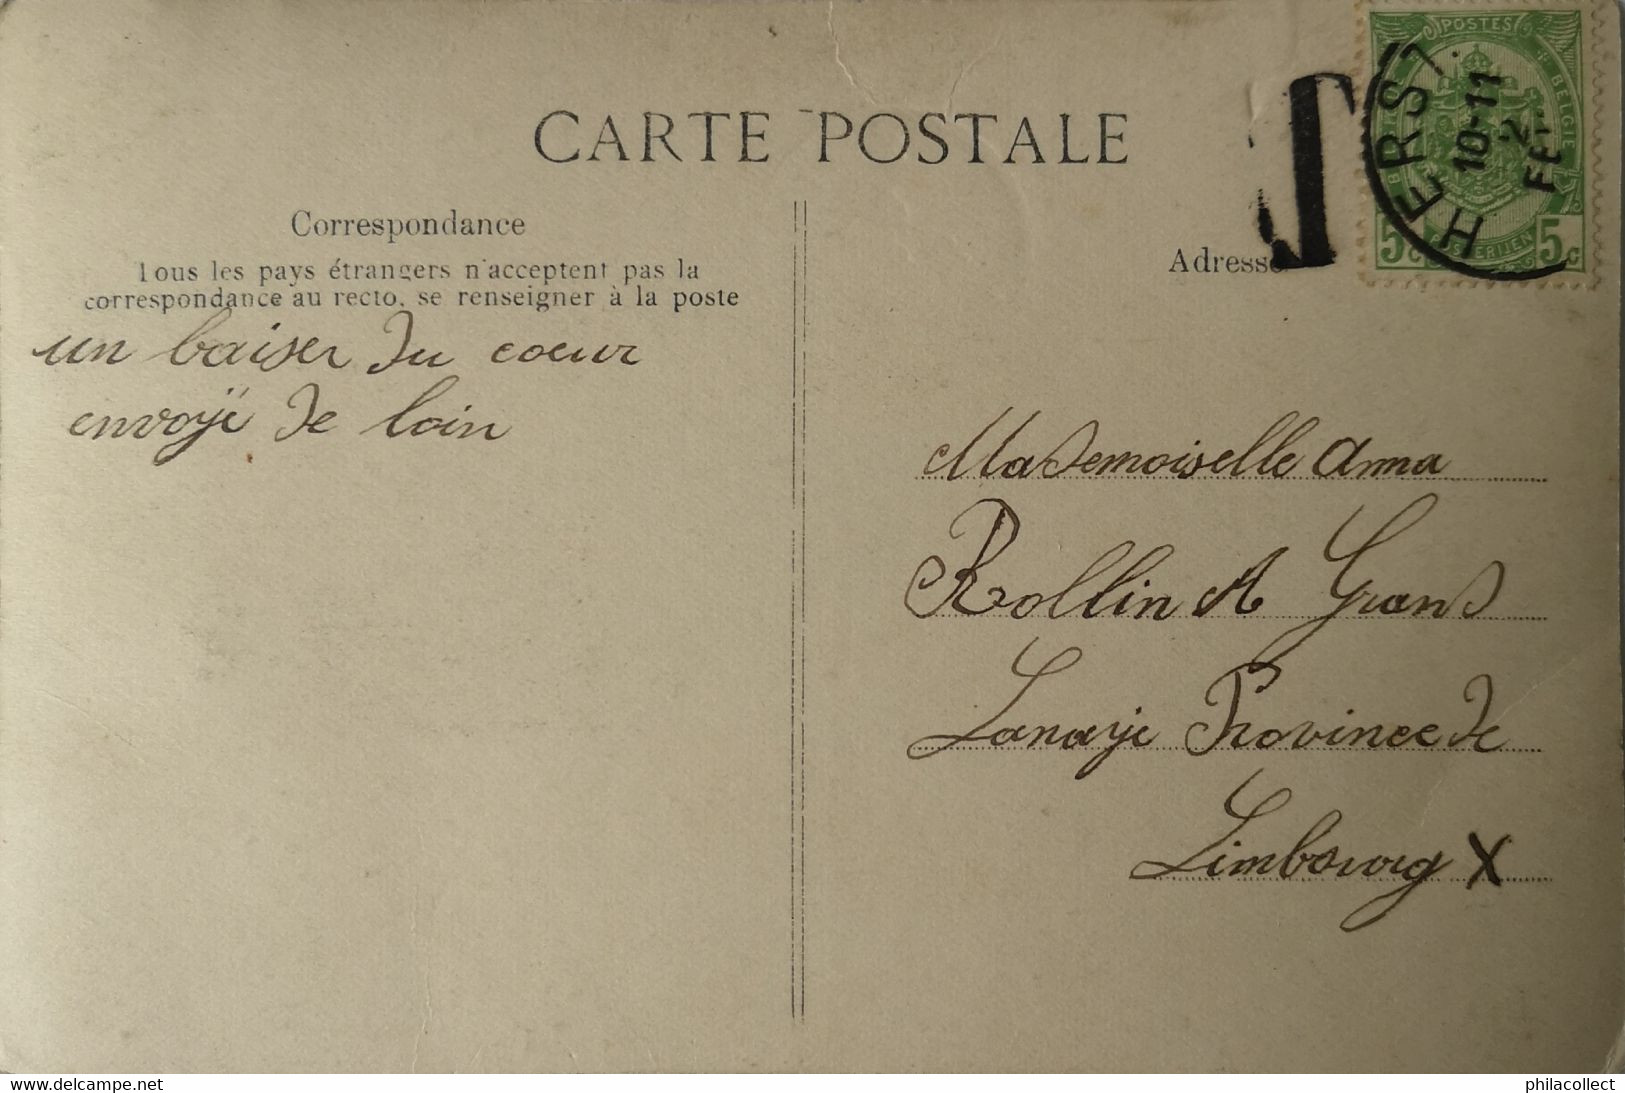 CARTE POSTALE
POSTES
BELGIE
5c
5c
HERST
10-11
2
Correspondance
Tous les pays étrangers n'acceptent pas la
correspondance au recto, se renseigner à la poste
Adresse
T
un baiser du coeur
envoyé de loin
Mademoiselle Anna
Rollin A Grand
Lanaye Province de
Limbourg X
www.delcampe.net
philacollect